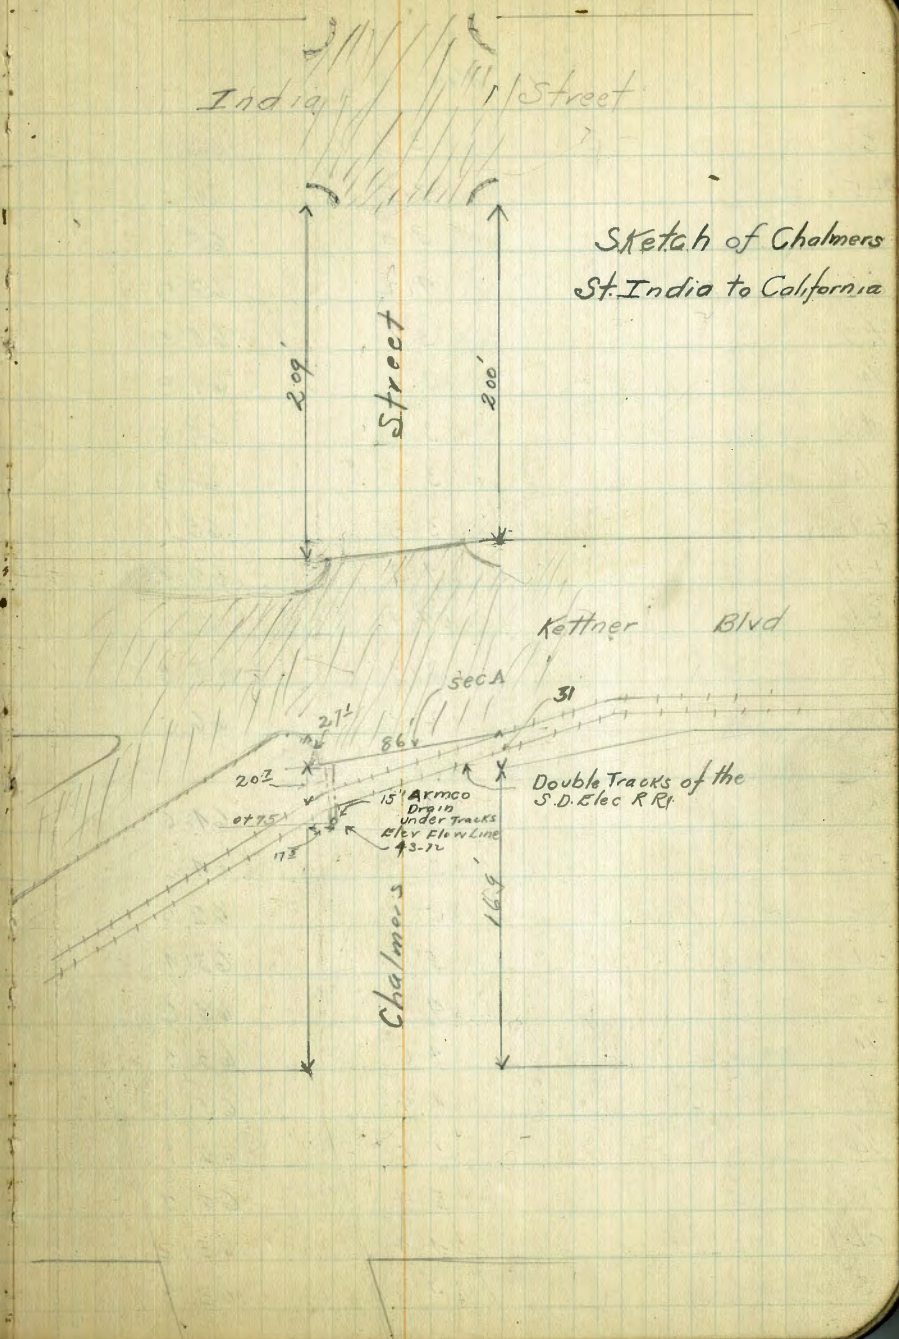 India Street
Sketch of Chalmers
St. India to California
209'
Street
200'
Kettner Blvd
sec A
31
27¹
86'
20⁷
Double Tracks of the
S.D. Elec R Ry.
15" Armco
Drain
under Tracks
Elev Flow Line
43-72
0+75
17⁵
169'
Chalmers